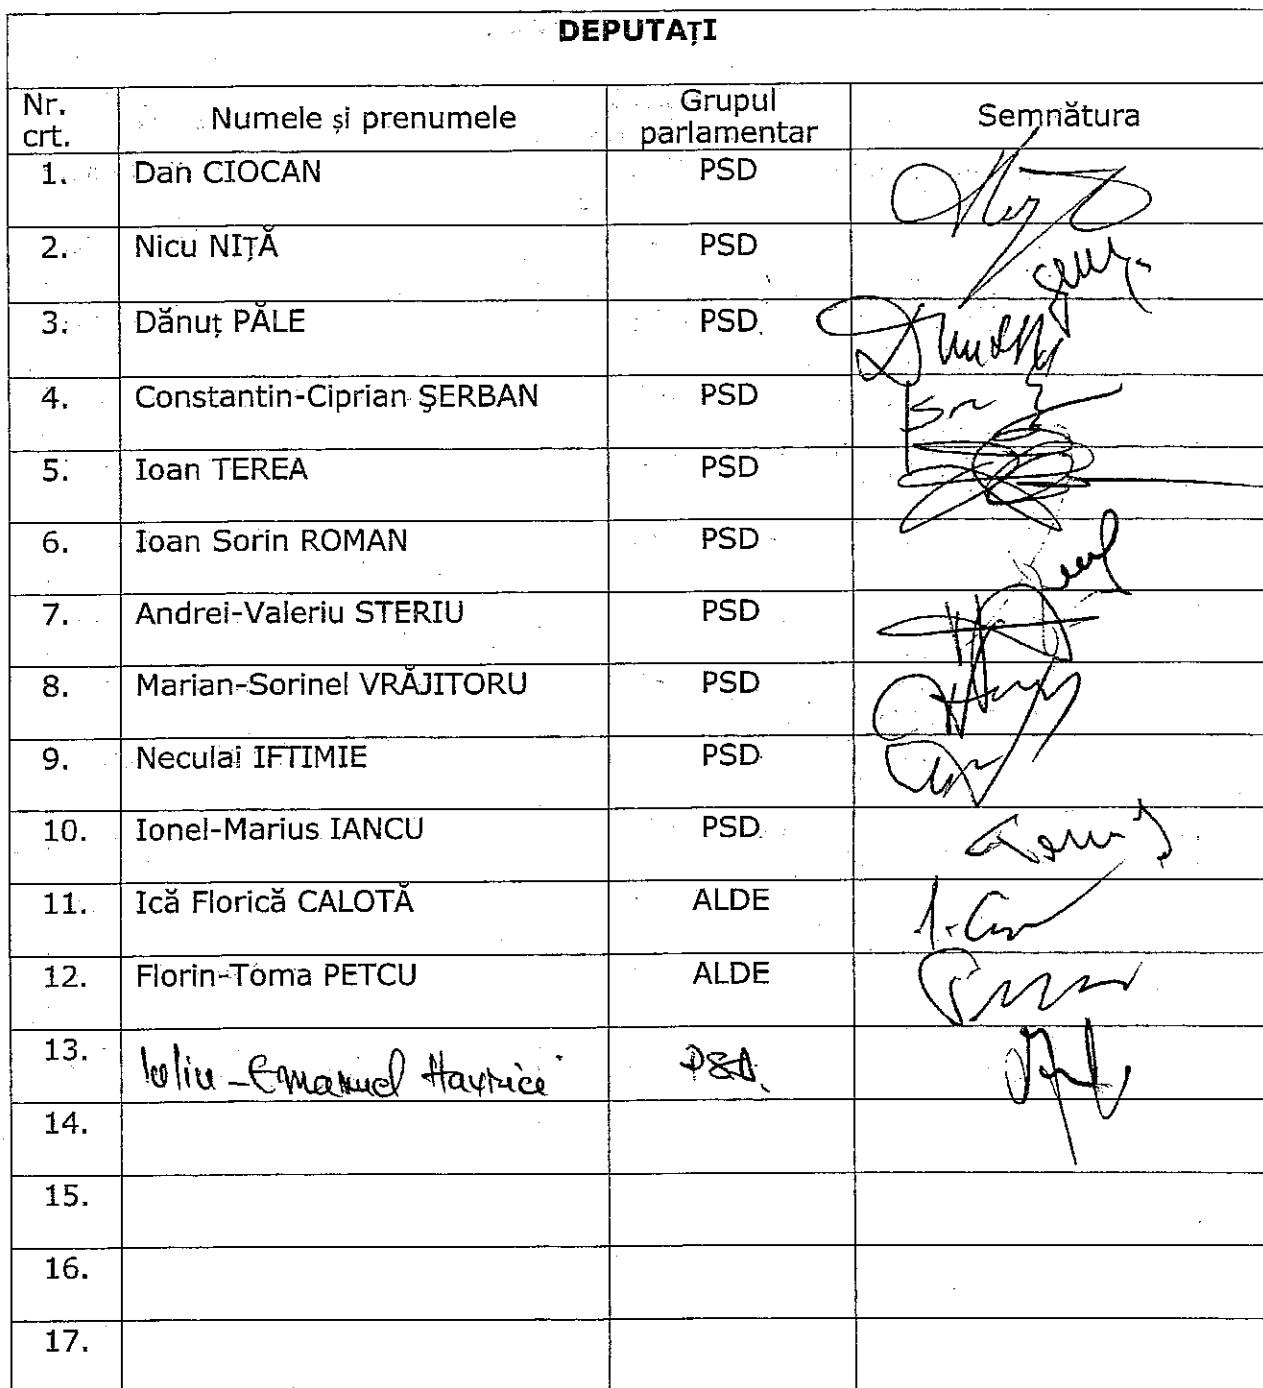 DEPUTAȚI
Nr. crt. Numele și prenumele Grupul parlamentar Semnătura
1. Dan CIOCAN PSD
2. Nicu NIȚĂ PSD
3. Dănuț PĂLE PSD
4. Constantin-Ciprian ŞERBAN PSD
5. Ioan TEREA PSD
6. Ioan Sorin ROMAN PSD
7. Andrei-Valeriu STERIU PSD
8. Marian-Sorinel VRĂJITORU PSD
9. Neculai IFTIMIE PSD
10. Ionel-Marius IANCU PSD
11. Ică Florică CALOTĂ ALDE
12. Florin-Toma PETCU ALDE
13. Iuliu-Emanuel PSD.
14.
15.
16.
17.